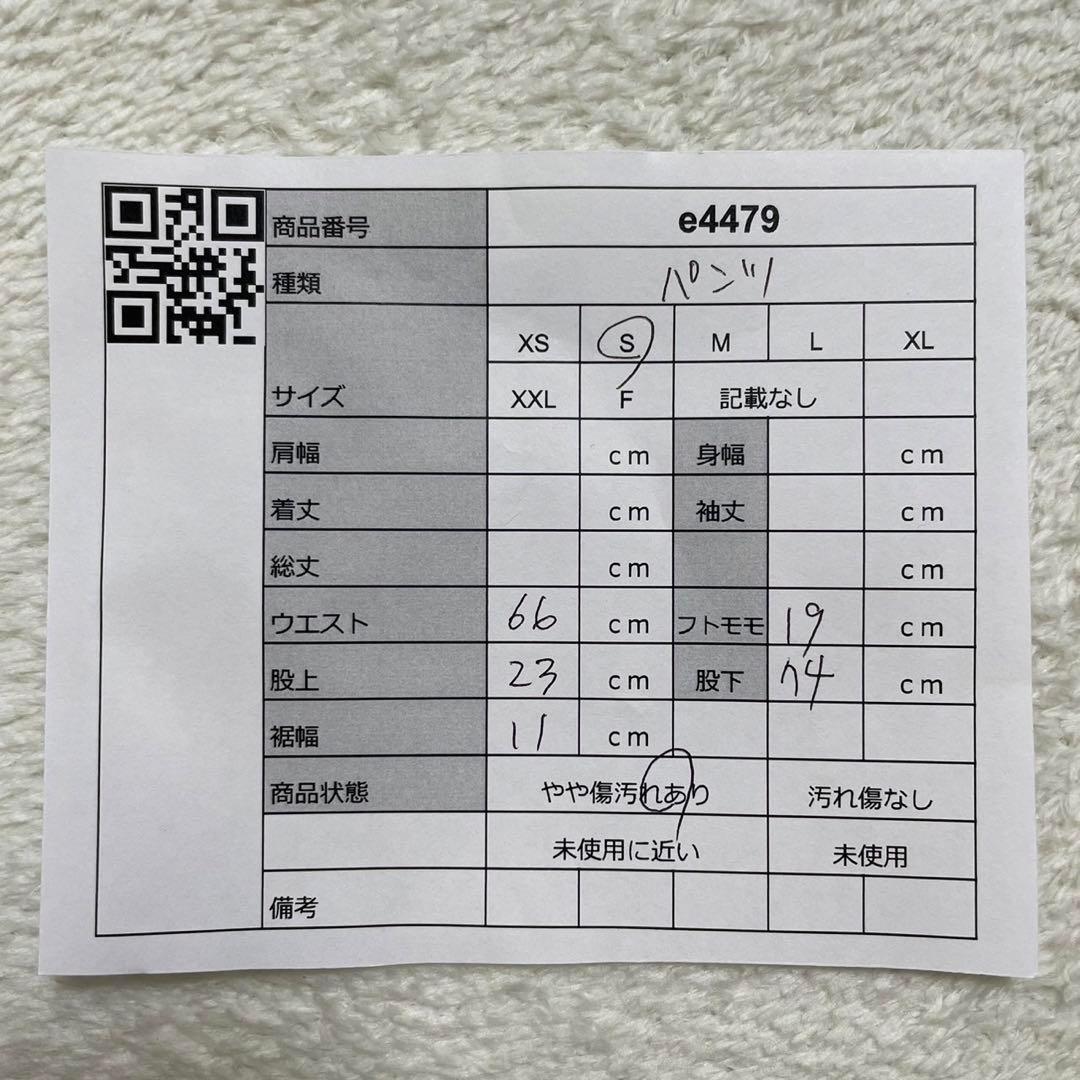 商品番号 e4479
種類 パンツ
XS S M L XL
サイズ XXL F 記載なし
肩幅 cm 身幅 cm
着丈 cm 袖丈 cm
総丈 cm cm
ウエスト 66 cm フトモモ 19 cm
股上 23 cm 股下 74 cm
裾幅 11 cm
商品状態 やや傷汚れあり 汚れ傷なし
未使用に近い 未使用
備考